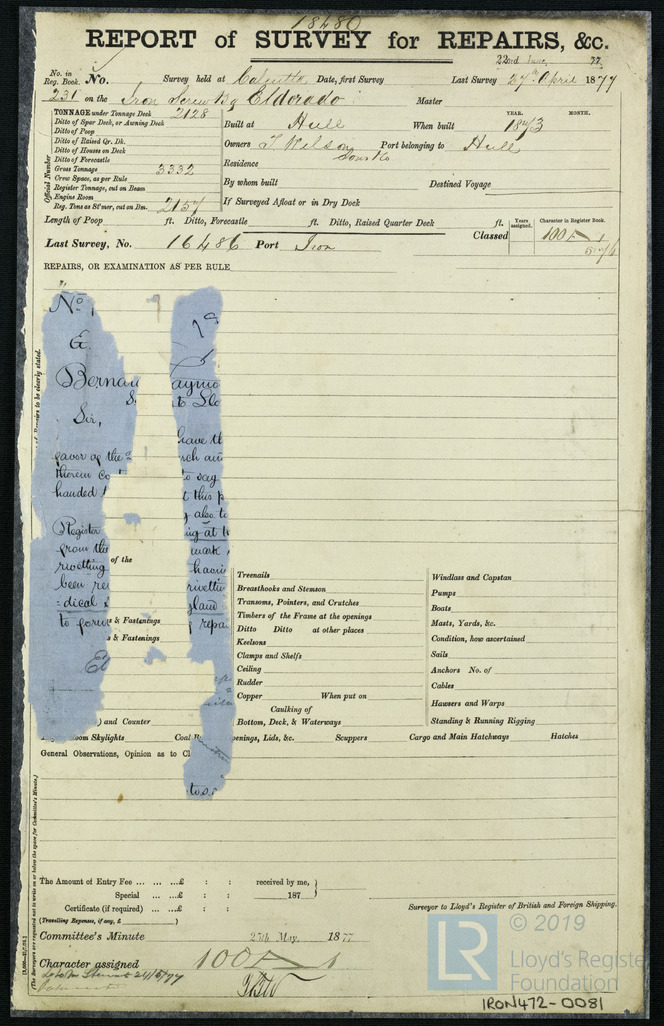 18480
REPORT of SURVEY for REPAIRS, &c.
22nd June, 77.
No. in Reg. Book. No. Survey held at Calcutta Date, first Survey Last Survey 27th April 1877
231 on the Iron Screw Bg Eldorado Master
TONNAGE under Tonnage Deck 2128
Ditto of Spar Deck, or Awning Deck
Ditto of Poop
Ditto of Raised Qr. Dk.
Ditto of Houses on Deck
Ditto of Forecastle
Gross Tonnage 3332
Crew Space, as per Rule
Register Tonnage, cut on Beam
Engine Room
Reg. Tons as St'mer, cut on Bm. 2157
Official Number
Built at Hull When built YEAR. 1873 MONTH.
Owners T Wilson Sons & Co Port belonging to Hull
Residence
By whom built Destined Voyage
If Surveyed Afloat or in Dry Dock
Length of Poop ft. Ditto, Forecastle ft. Ditto, Raised Quarter Deck ft.
Years assigned. Character in Register Book.
Last Survey, No. 16486 Port Iron Classed 100 A 1
5,76
REPAIRS, OR EXAMINATION AS PER RULE
No.
1a
&
Bernar aymo
S to Llo
Sir,
have th
favor of the rch an
therein co to say
handed t this p
y also to
Register ing at t
from the mark
of the
rivetting havin
been re rivettin
-dical gland
to forw s & Fastenings repa
s & Fastenings
) and Counter
Treenails
Breasthooks and Stemson
Transoms, Pointers, and Crutches
Timbers of the Frame at the openings
Ditto Ditto at other places
Keelsons
Clamps and Shelfs
Ceiling
Rudder
Copper When put on
Caulking of
Bottom, Deck, & Waterways
Windlass and Capstan
Pumps
Boats
Masts, Yards, &c.
Condition, how ascertained
Sails
Anchors No. of
Cables
Hawsers and Warps
Standing & Running Rigging
oom Skylights Coal B enings, Lids, &c. Scuppers Cargo and Main Hatchways Hatches
General Observations, Opinion as to Cl
The Amount of Entry Fee ... ... ...£ : : received by me,
Special ... ...£ : : 187
Certificate (if required) ... ...£ : :
(Travelling Expenses, if any, £ )
Surveyor to Lloyd's Register of British and Foreign Shipping.
Committee's Minute 25th May 1877
Character assigned 100 A 1
24/5/77
(The Surveyors are requested not to write on or below the space for Committee's Minute.)
© 2019
LR
Lloyd's Registe
Foundation
IRON472-0081